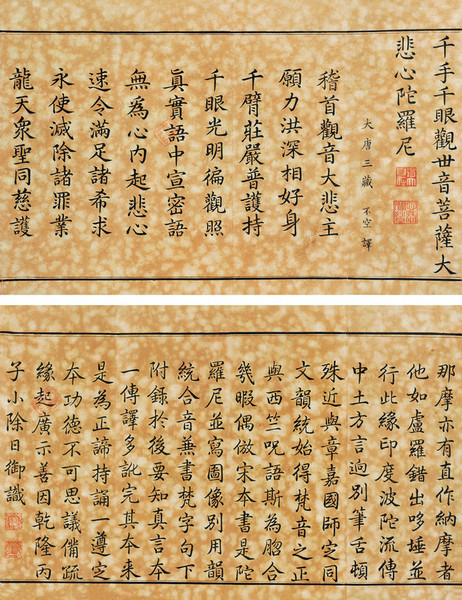 千手千眼觀世音菩薩大
悲心陀羅尼
大唐三藏 不空 譯
稽首觀音大悲主
願力洪深相好身
千臂莊嚴普護持
千眼光明徧觀照
眞實語中宣密語
無為心內起悲心
速令滿足諸希求
永使滅除諸罪業
龍天衆聖同慈護
那摩亦有直作納摩者
他如盧羅錯出哆埵並
行此緣印度波陀流傳
中土方言逈別筆舌頓
殊近與章嘉國師定同
文韻統始得梵音之正
與西竺呪語斯為脗合
幾暇偶倣宋本書是陀
羅尼並寫圖像別用韻
統合音兼書梵字句下
附錄於後要知真言本
一傳譯多訛完其本來
是為正諦持誦一遵定
本功德不可思議備疏
緣起廣示善因乾隆丙
子小除日御識